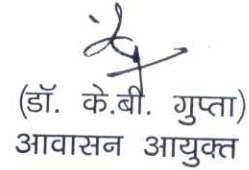 (डॉ. के.बी. गुप्ता)
आवासन आयुक्त